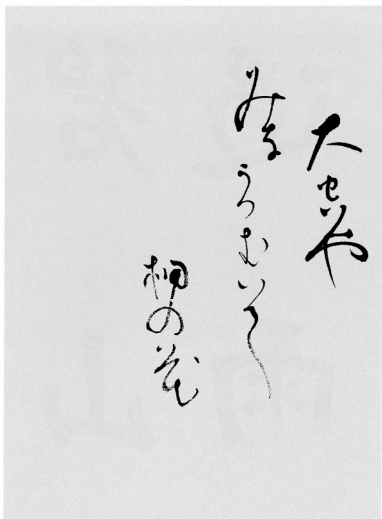 大空や
みなうつむいて
桐の花